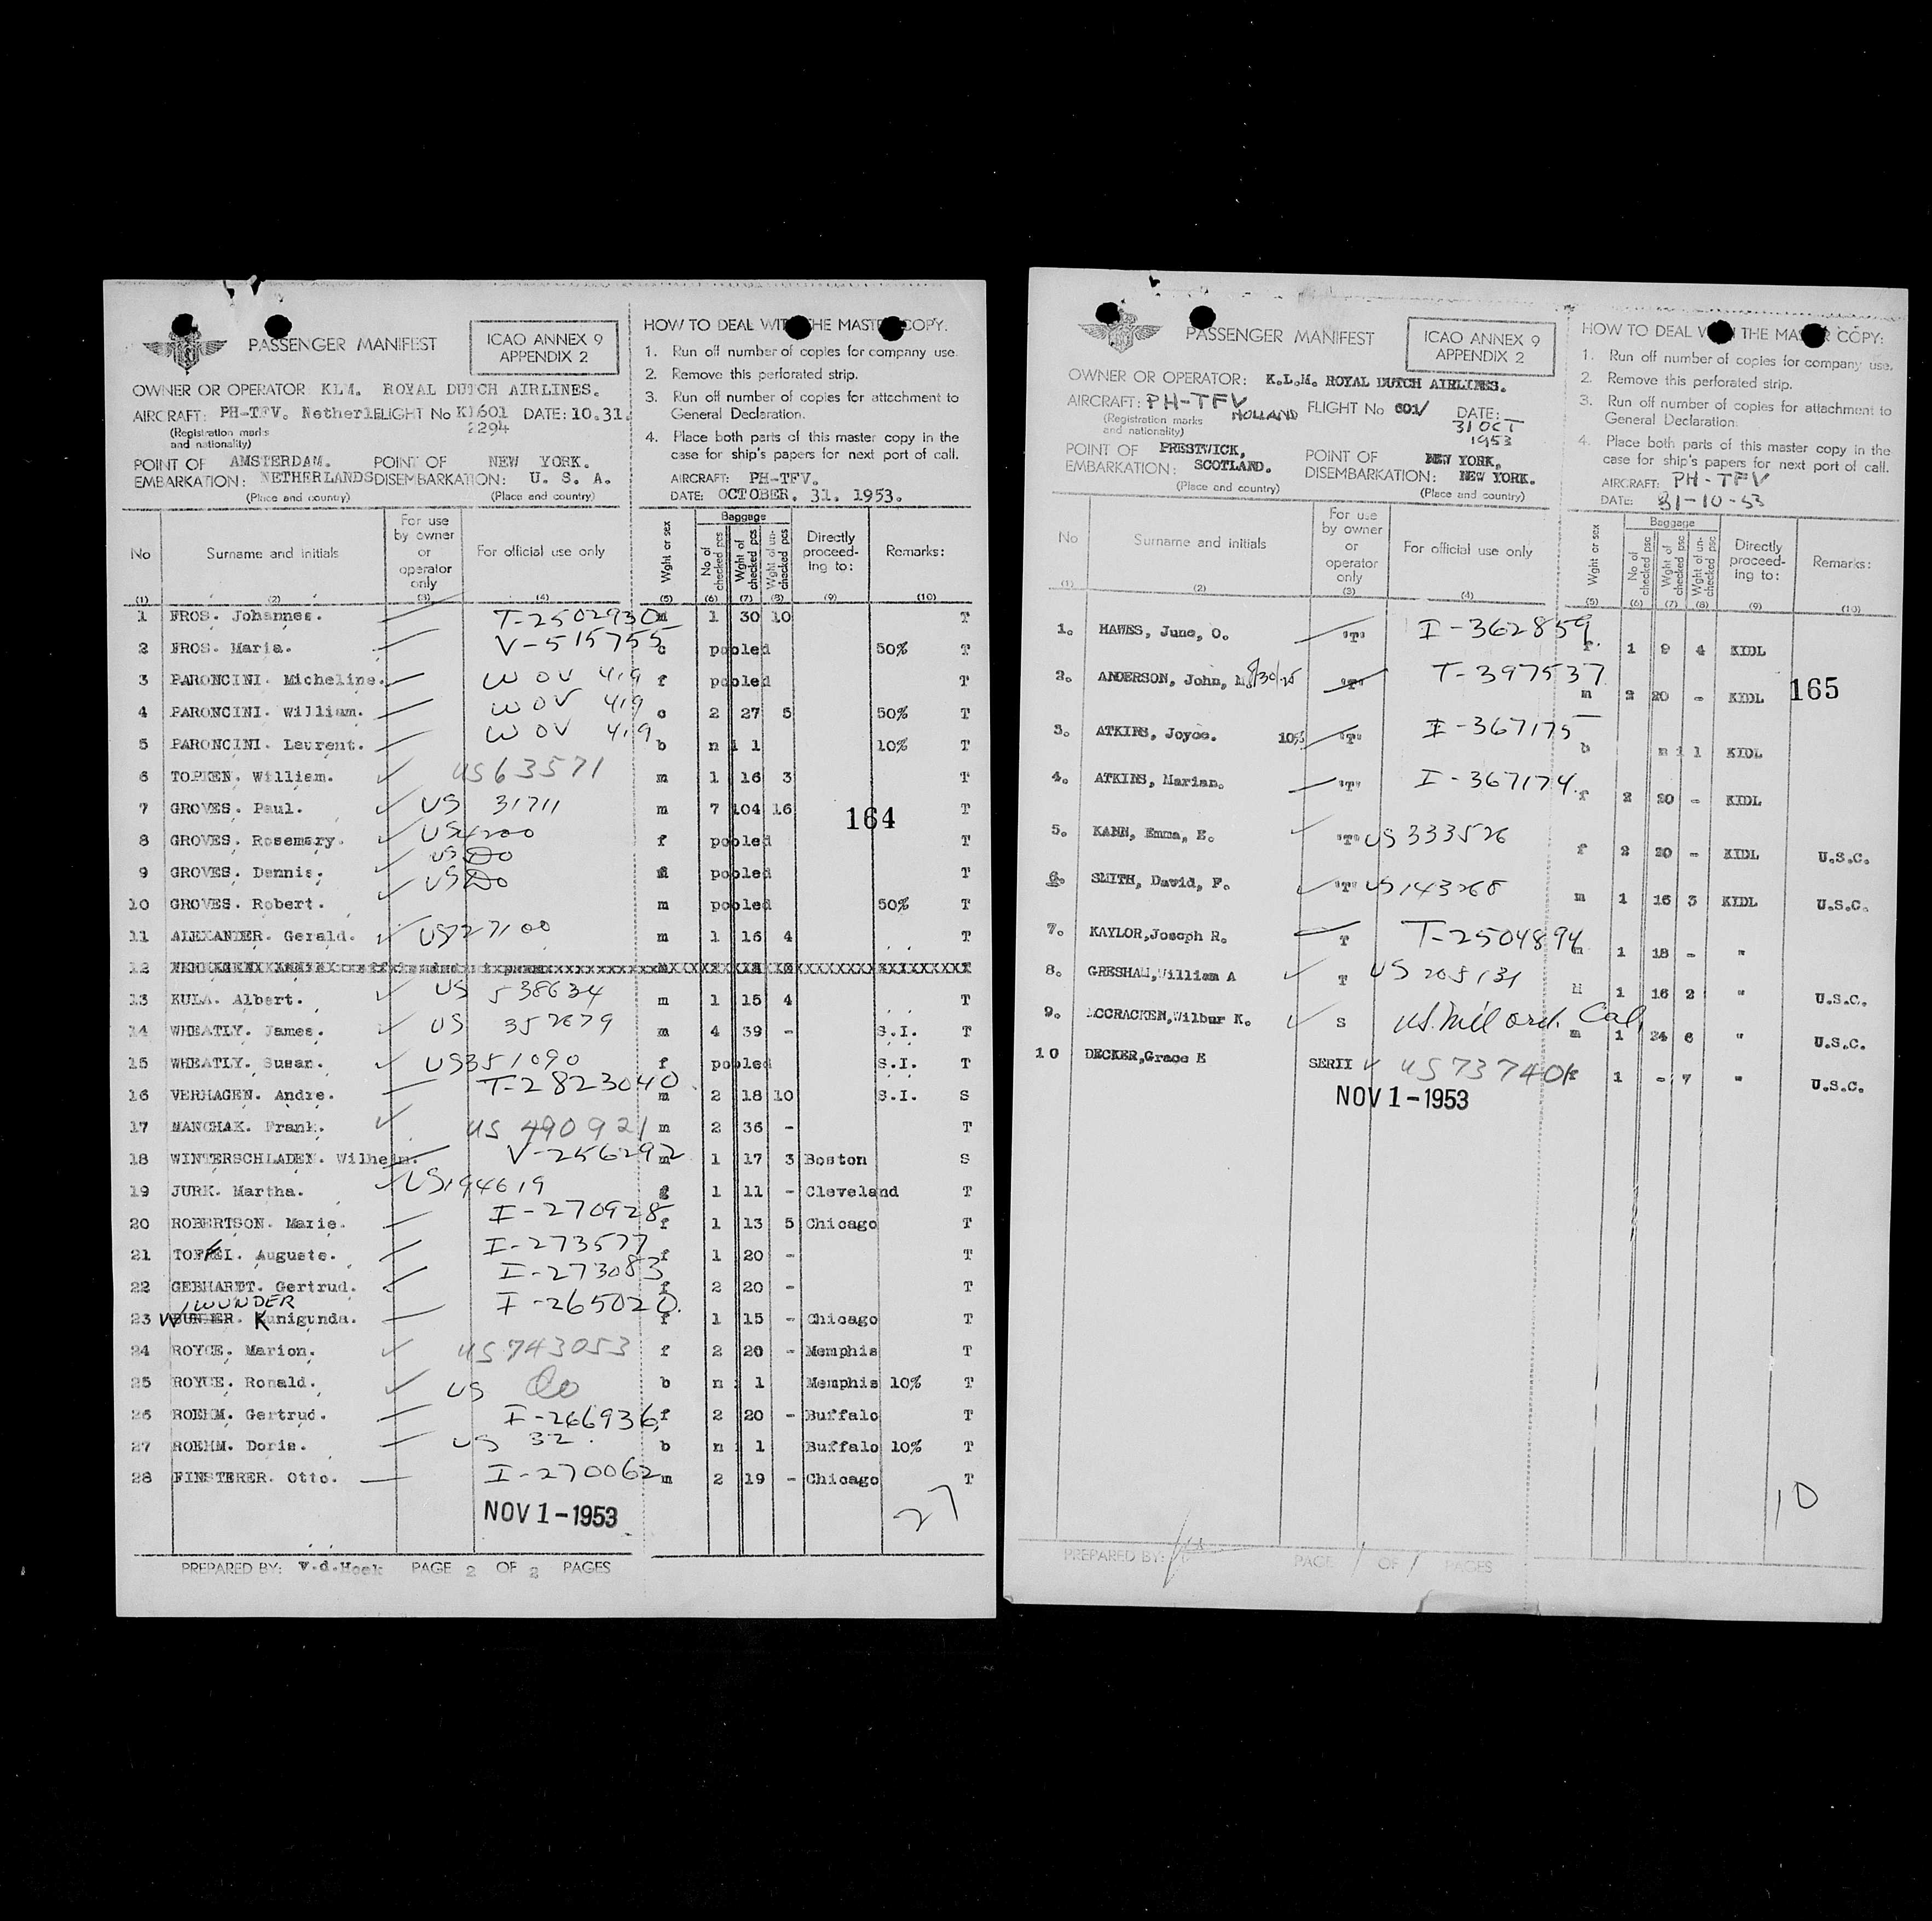 PASSENGER MANIFEST
ICAO ANNEX 9
APPENDIX 2
OWNER OR OPERATOR: KLM. ROYAL DUTCH AIRLINES.
AIRCRAFT: PH-TFV. Netherl FLIGHT No KL601 DATE: 10.31.
2294
(Registration marks
and nationality)
POINT OF EMBARKATION: AMSTERDAM. NETHERLANDS POINT OF DISEMBARKATION: NEW YORK. U. S. A.
(Place and country) (Place and country)
HOW TO DEAL WITH THE MASTER COPY.
1. Run off number of copies for company use.
2. Remove this perforated strip.
3. Run off number of copies for attechment to
General Declaration.
4. Place both parts of this master copy in the
case for ship's papers for next port of call.
AIRCRAFT: PH-TFV.
DATE: OCTOBER. 31. 1953.
No Surname and initials For use by owner or operator only For official use only Wght or sex Baggage No of checked pcs Wght of checked pcs Wght of un-checked pcs Directly proceed-ing to: Remarks:
(1) (2) (3) (4) (5) (6) (7) (8) (9) (10)
1 FROS. Johannes. T-2502930 m 1 30 10 T
2 FROS. Maria. V-515755 c pooled 50% T
3 PARONCINI. Micheline. WOV 419 f pooled T
4 PARONCINI. William. WOV 419 c 2 27 5 50% T
5 PARONCINI. Laurent. WOV 419 b n i l 10% T
6 TOPKEN. William. US63571 m 1 16 3 T
7 GROVES. Paul. US 31711 m 7 104 16 T
164
8 GROVES. Rosemary. US f pooled T
9 GROVES. Dennis. US Do pooled T
10 GROVES. Robert. US Do m pooled 50% T
11 ALEXANDER. Gerald. US727100 m 1 16 4 T
12
13 KULA. Albert. US 538634 m 1 15 4 T
14 WHEATLY. James. US 352679 m 4 39 - S.I. T
15 WHEATLY. Susan. US351090 f pooled S.I. T
16 VERHAGEN. Andre. T-2823040 m 2 18 10 S.I. S
17 MANCHAK. Frank. US 490921 m 2 36 - T
18 WINTERSCHLADEN. Wilhelm. V-256292 m 1 17 3 Boston S
19 JURK. Martha. US194619 1 11 - Cleveland T
20 ROBERTSON. Marie. I-270928 f 1 13 5 Chicago T
21 I. Auguste. I-273577 f 1 20 - T
22 GEBHARDT. Gertrud. I-273083 f 2 20 - T
WUNDER
23 Kunigunda. I-265020. f 1 15 - Chicago T
24 ROYCE. Marion. US743053 f 2 20 - Memphis T
25 ROYCE. Ronald. US Do b n i l Memphis 10% T
26 ROEHM. Gertrud. I-266936, f 2 20 - Buffalo T
27 ROEHM. Doris. US 32. b n i l Buffalo 10% T
28 FINSTERER. Otto. I-270062 m 2 19 - Chicago T
NOV 1-1953
27
PREPARED BY: V.d.Hoek PAGE 2 OF 2 PAGES
PASSENGER MANIFEST
ICAO ANNEX 9
APPENDIX 2
OWNER OR OPERATOR: K.L.M. ROYAL DUTCH AIRLINES.
AIRCRAFT: PH-TFV HOLLAND FLIGHT No 601/ DATE: 31 OCT 1953
(Registration marks
and nationality)
POINT OF EMBARKATION: PRESTWICK, SCOTLAND. POINT OF DISEMBARKATION: NEW YORK, NEW YORK.
(Place and country) (Place and country)
HOW TO DEAL WITH THE MASTER COPY:
1. Run off number of copies for company use.
2. Remove this perforated strip.
3. Run off number of copies for attachment to
General Declaration.
4. Place both parts of this master copy in the
case for ship's papers for next port of call.
AIRCRAFT: PH-TFV
DATE: 31-10-53
No Surname and initials For use by owner or operator only For official use only Wght or sex Baggage No of checked psc Wght of checked psc Wght of un-checked psc Directly proceed-ing to: Remarks:
(1) (2) (3) (4) (5) (6) (7) (8) (9) (10)
1. HAWES, June, O. "T" I-362859 f. 1 9 4 KIDL
2. ANDERSON, John, M. 8/30/25 "T" T-397537 m 2 20 - KIDL
165
3. ATKINS, Joyce. 10% "T" I-367175 b n i l KIDL
4. ATKINS, Marian. "T" I-367174. f 2 20 - KIDL
5. KANN, Emma, E. "T" US333526 f 2 20 - KIDL U.S.C.
6. SMITH, David, F. "T" US143268 m 1 16 3 KIDL U.S.C.
7. KAYLOR, Joseph R. T T-2504894 m 1 18 - "
8. GRESHAM, William A T US 205131 M 1 16 2 " U.S.C.
9. MCCRACKEN, Wilbur K. S US. Mil ord. Cal, m 1 24 6 " U.S.C.
10 DECKER, Grace E SERII US 737401 f 1 - 7 " U.S.C.
NOV 1-1953
10
PREPARED BY: PAGE 1 OF 1 PAGES